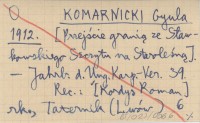 KOMARNICKI Gyula
1912. [Przejście granią ze Sław-
kowskiego Szczytu na Staroleśną].
— Jahrb. d. Ung. Karp.-Ver. 39.
Rec.: [Kordys Roman]
rks, Taternik (Lwów) 6